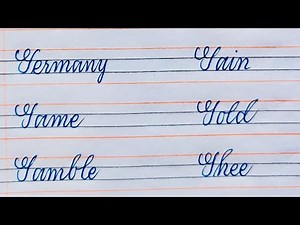 Germany Gain
Game Gold
Gamble Ghee